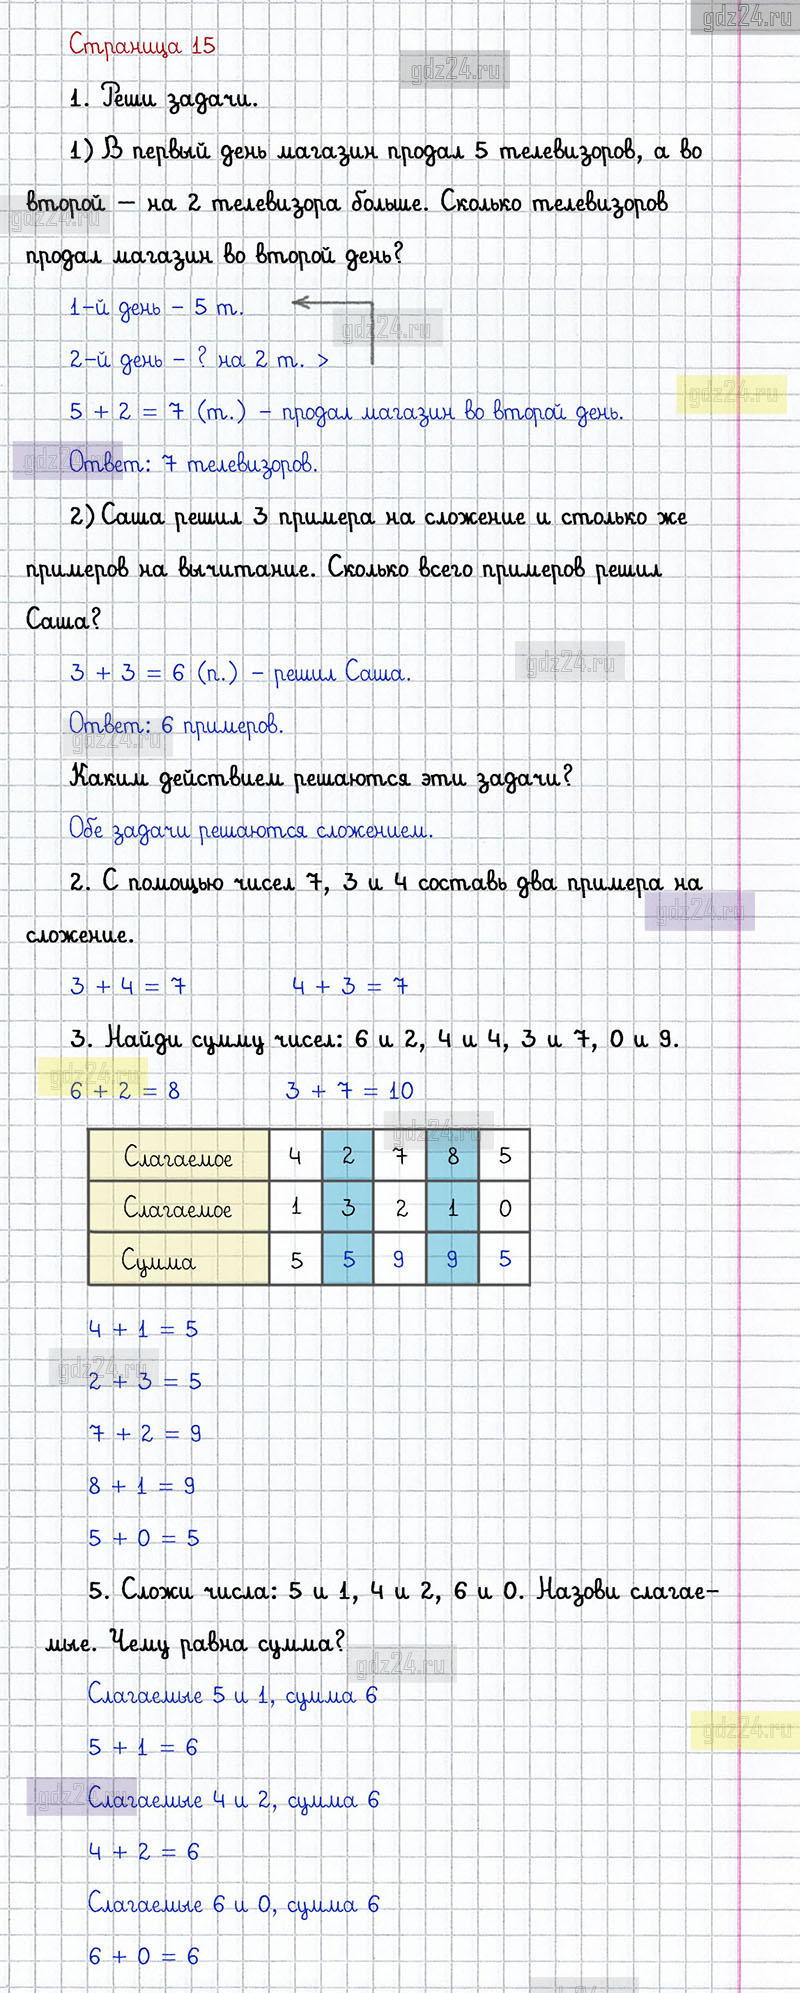 gdz24.ru
Страница 15
gdz24.ru
1. Реши задачи.
1) В первый день магазин продал 5 телевизоров, а во
второй – на 2 телевизора больше. Сколько телевизоров
gdz24.ru
продал магазин во второй день?
1-й день – 5 т.
gdz24.ru
2-й день – ? на 2 т. >
gdz24.ru
5 + 2 = 7 (т.) – продал магазин во второй день.
gdz24.ru
Ответ: 7 телевизоров.
2) Саша решил 3 примера на сложение и столько же
примеров на вычитание. Сколько всего примеров решил
Саша?
gdz24.ru
3 + 3 = 6 (п.) – решил Саша.
Ответ: 6 примеров.
gdz24.ru
Каким действием решаются эти задачи?
Обе задачи решаются сложением.
2. С помощью чисел 7, 3 и 4 составь два примера на
gdz24.ru
сложение.
3 + 4 = 7 4 + 3 = 7
3. Найди сумму чисел: 6 и 2, 4 и 4, 3 и 7, 0 и 9.
gdz24.ru
6 + 2 = 8 3 + 7 = 10
gdz24.ru
Слагаемое 4 2 7 8 5
Слагаемое 1 3 2 1 0
Сумма 5 5 9 9 5
4 + 1 = 5
gdz24.ru
2 + 3 = 5
7 + 2 = 9
8 + 1 = 9
5 + 0 = 5
5. Сложи числа: 5 и 1, 4 и 2, 6 и 0. Назови слагае-
мые. Чему равна сумма?
gdz24.ru
Слагаемые 5 и 1, сумма 6
gdz24.ru
5 + 1 = 6
gdz24.ru
Слагаемые 4 и 2, сумма 6
4 + 2 = 6
Слагаемые 6 и 0, сумма 6
6 + 0 = 6
gdz24.ru